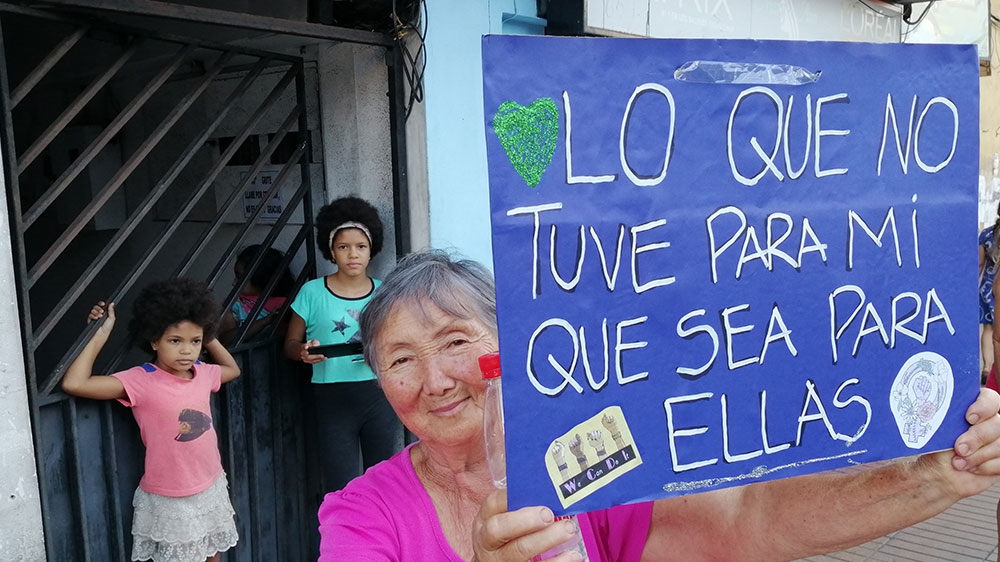 LO QUE NO
TUVE PARA Mi
QUE SEA PARA
ELLAS
We Can Do It
LOREAL